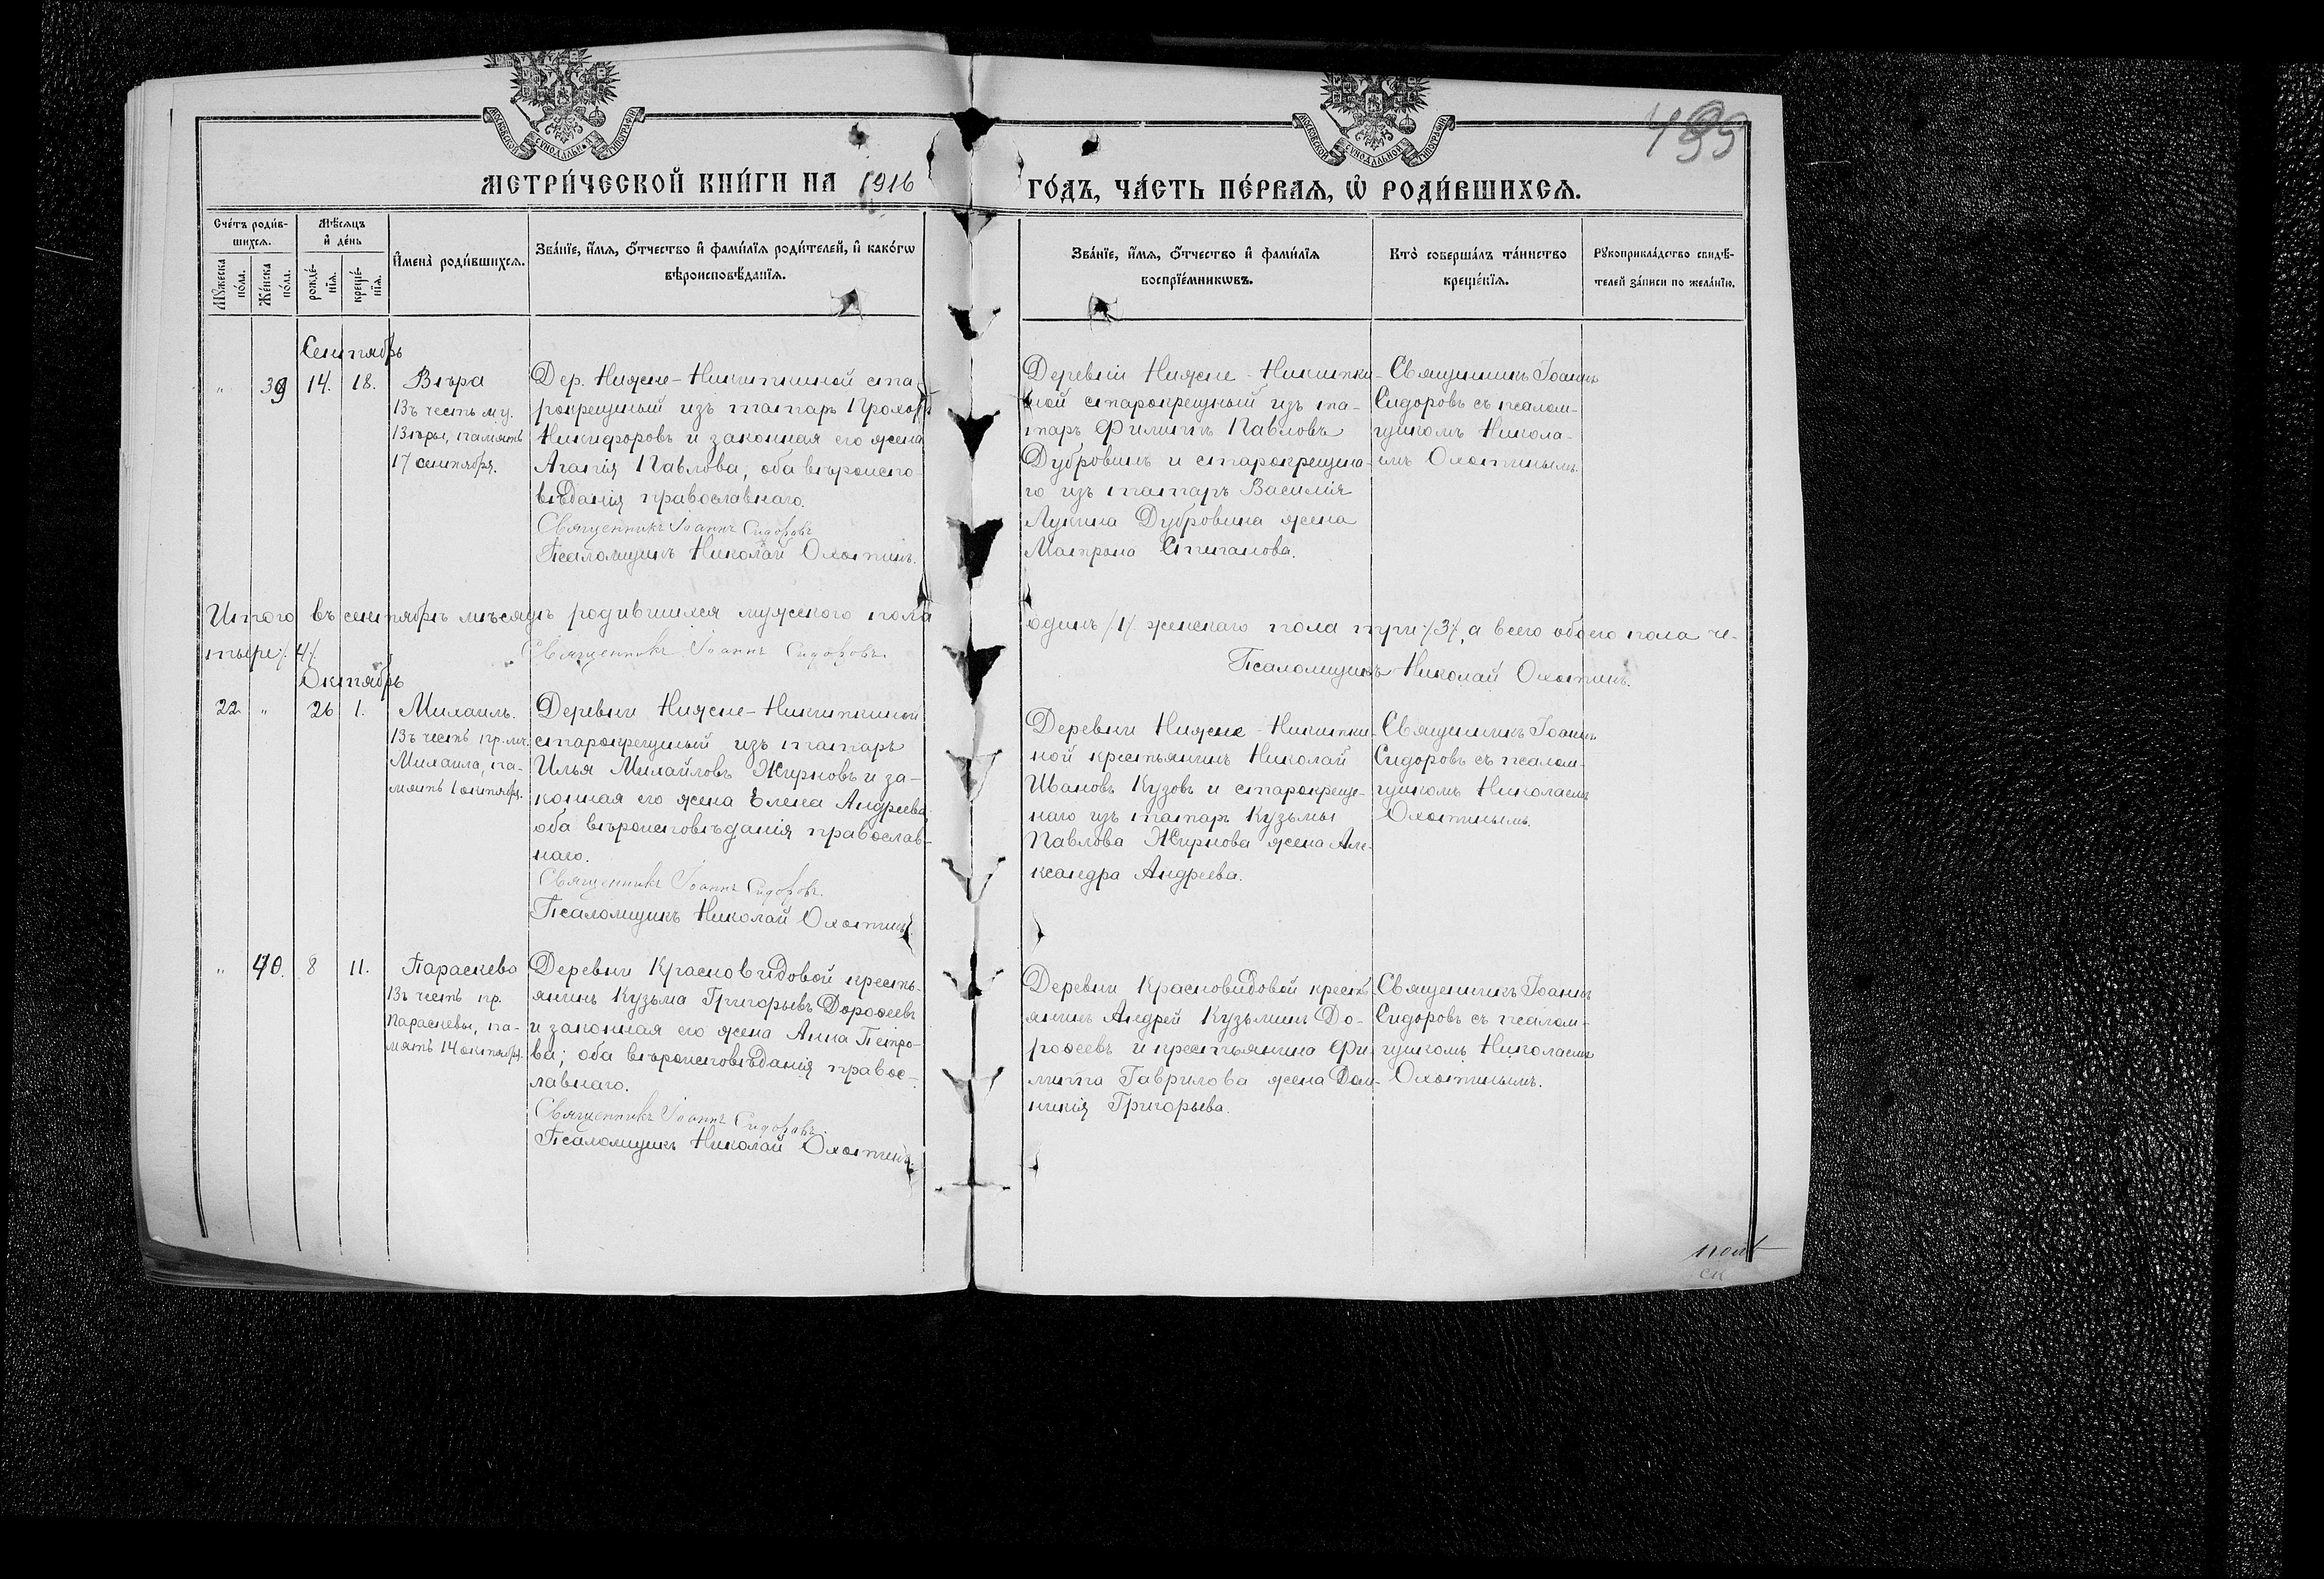 499
МОСКОВСКОЙ СѴНОДАЛЬНОЙ ТИПОГРАФІИ
МОСКОВСКОЙ СѴНОДАЛЬНОЙ ТИПОГРАФІИ
МЕТРИ́ЧЕСКОЙ КНИ́ГИ НА 1916
ГО́ДЪ, ЧА́СТЬ ПЕ́РВАЯ, Ѡ҆ РОДИ́ВШИХСЯ.
Сче́тъ роди́в-
шихся.
Мѣ́сяцъ
и҆ де́нь
Мꙋ́жеска
по́ла.
Же́нска
по́ла.
рожде́-
нїя.
креще́-
нїя.
И҆мена̀ роди́вшихся.
Зва́нїе, и҆́мя, ѻ҆́тчество и҆ фами́лїя роди́телей, и҆ како́гѡ
вѣроисповѣ́данїя.
Зва́нїе, и҆́мя, ѻ҆́тчество и҆ фами́лїя
воспрїе́мникѡвъ.
Кто̀ соверша́лъ та́инство
креще́нїя.
Рꙋкоприкла́дство свидѣ́-
телей за́писи по жела́нїю.
Сентябрь
" 39 14. 18. Вѣра
Въ честь му.
Вѣры, память
17 сентября.
Дер. Нижне-Никиткиной ста-
рокрещеный изъ татаръ Прохоръ
Никифоровъ и законная его жена
Агапія Павлова, оба вѣроиспо-
вѣданія православнаго.
Священникъ Іоаннъ Сидоровъ
Псаломщикъ Николай Охотинъ.
Деревни Нижне-Никитки-
ной старокрещеный изъ та-
таръ Филиппъ Павловъ
Дубровинъ и старокрещена-
го изъ татаръ Василія
Лукина Дубровина жена
Матрона Стиганова.
Священникъ Іоаннъ
Сидоровъ съ псалом-
щикомъ Никола-
емъ Охотинымъ.
Итого въ сентябрѣ мѣсяцѣ родившихся мужского пола
одинъ /1/. женскаго пола три /3/, а всего обоего пола че-
тыре /4/
Священникъ Іоаннъ Сидоровъ.
Псаломщикъ Николай Охотинъ.
Октябрь
22 " 26 1. Михаилъ.
Въ честь пр. мч.
Михаила, па-
мять 1 октября.
Деревни Нижне-Никиткиной
старокрещеный изъ татаръ
Илья Михайловъ Жирновъ и за-
конная его жена Елена Андреева,
оба вѣроисповѣданія православ-
наго.
Священникъ Іоаннъ Сидоровъ.
Псаломщикъ Николай Охотинъ.
Деревни Нижне-Никитки-
ной крестьянинъ Николай
Ивановъ Кузовъ и старокреще-
наго изъ татаръ Кузьмы
Павлова Жирнова жена Але-
ксандра Андреева.
Священникъ Іоаннъ
Сидоровъ съ псалом-
щикомъ Николаемъ
Охотинымъ.
" 40. 8 11. Параскева
Въ честь пр.
Параскевы, па-
мять 14 октября.
Деревни Красновидовой кресть-
янинъ Кузьма Григорьевъ Дорофеевъ
и законная его жена Анна Петро-
ва; оба вѣроисповѣданія правос-
лавнаго.
Священникъ Іоаннъ Сидоровъ.
Псаломщикъ Николай Охотинъ.
Деревни Красновидовой кресть-
янинъ Андрей Кузьминъ До-
рофеевъ и крестьянина Фи-
липпа Гаврилова жена Дом-
никія Григорьева.
Священникъ Іоаннъ
Сидоровъ съ псалом-
щикомъ Николаемъ
Охотинымъ.